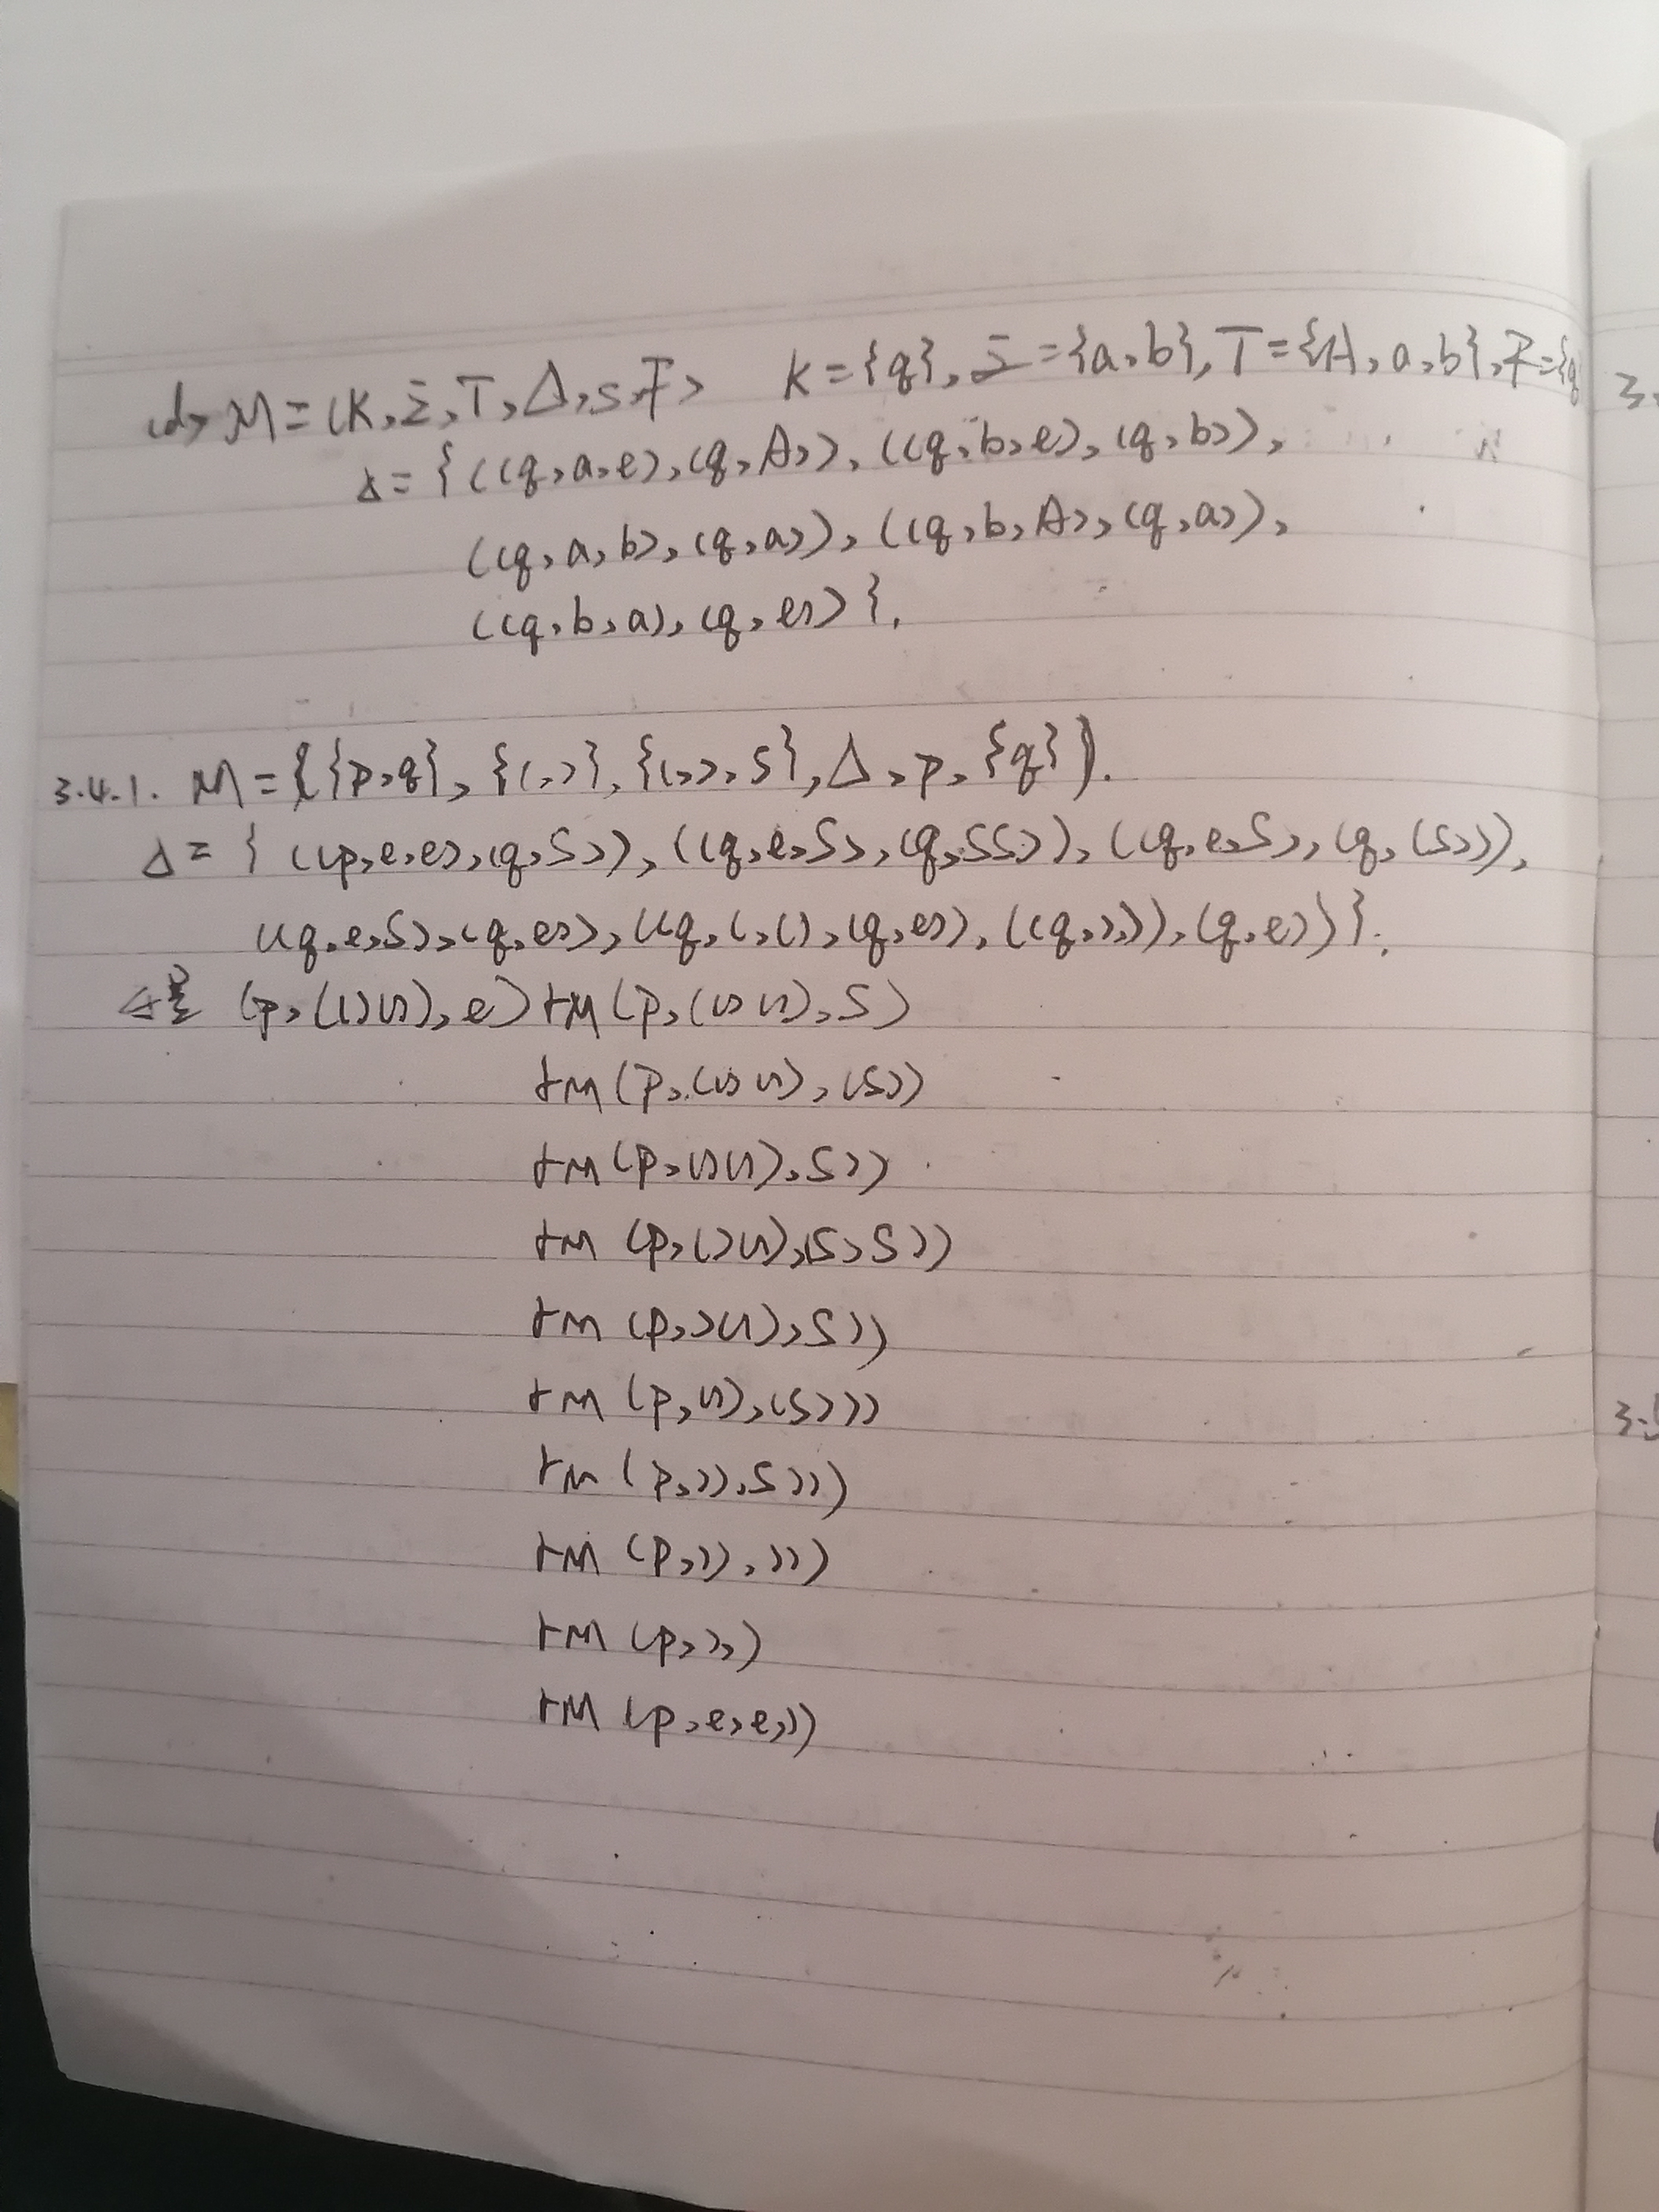 (d) M = (K, Σ, T, Δ, s, F) K = {q}, Σ = {a, b}, T = {A, a, b}, F = {q
Δ = { ((q, a, e), (q, A)), ((q, b, e), (q, b)),
((q, a, b), (q, a)), ((q, b, A), (q, a)),
((q, b, a), (q, e)) }.
3.4.1. M = ({p, q}, {(, )}, {(, ), S}, Δ, p, {q}).
Δ = { ((p, e, e), (q, S)), ((q, e, S), (q, SS)), ((q, e, S), (q, (S))),
((q, e, S), (q, e)), ((q, (, (), (q, e)), ((q, ), )), (q, e)) }.
(p, (()()), e) ⊢M (p, (()()), S)
⊢M (p, (()()), (S))
⊢M (p, ()()), S))
⊢M (p, ()()), (S)S))
⊢M (p, )()), S))
⊢M (p, ()), (S)))
⊢M (p, )), S)))
⊢M (p, )), ))
⊢M (p, ), )
⊢M (p, e, e, ))